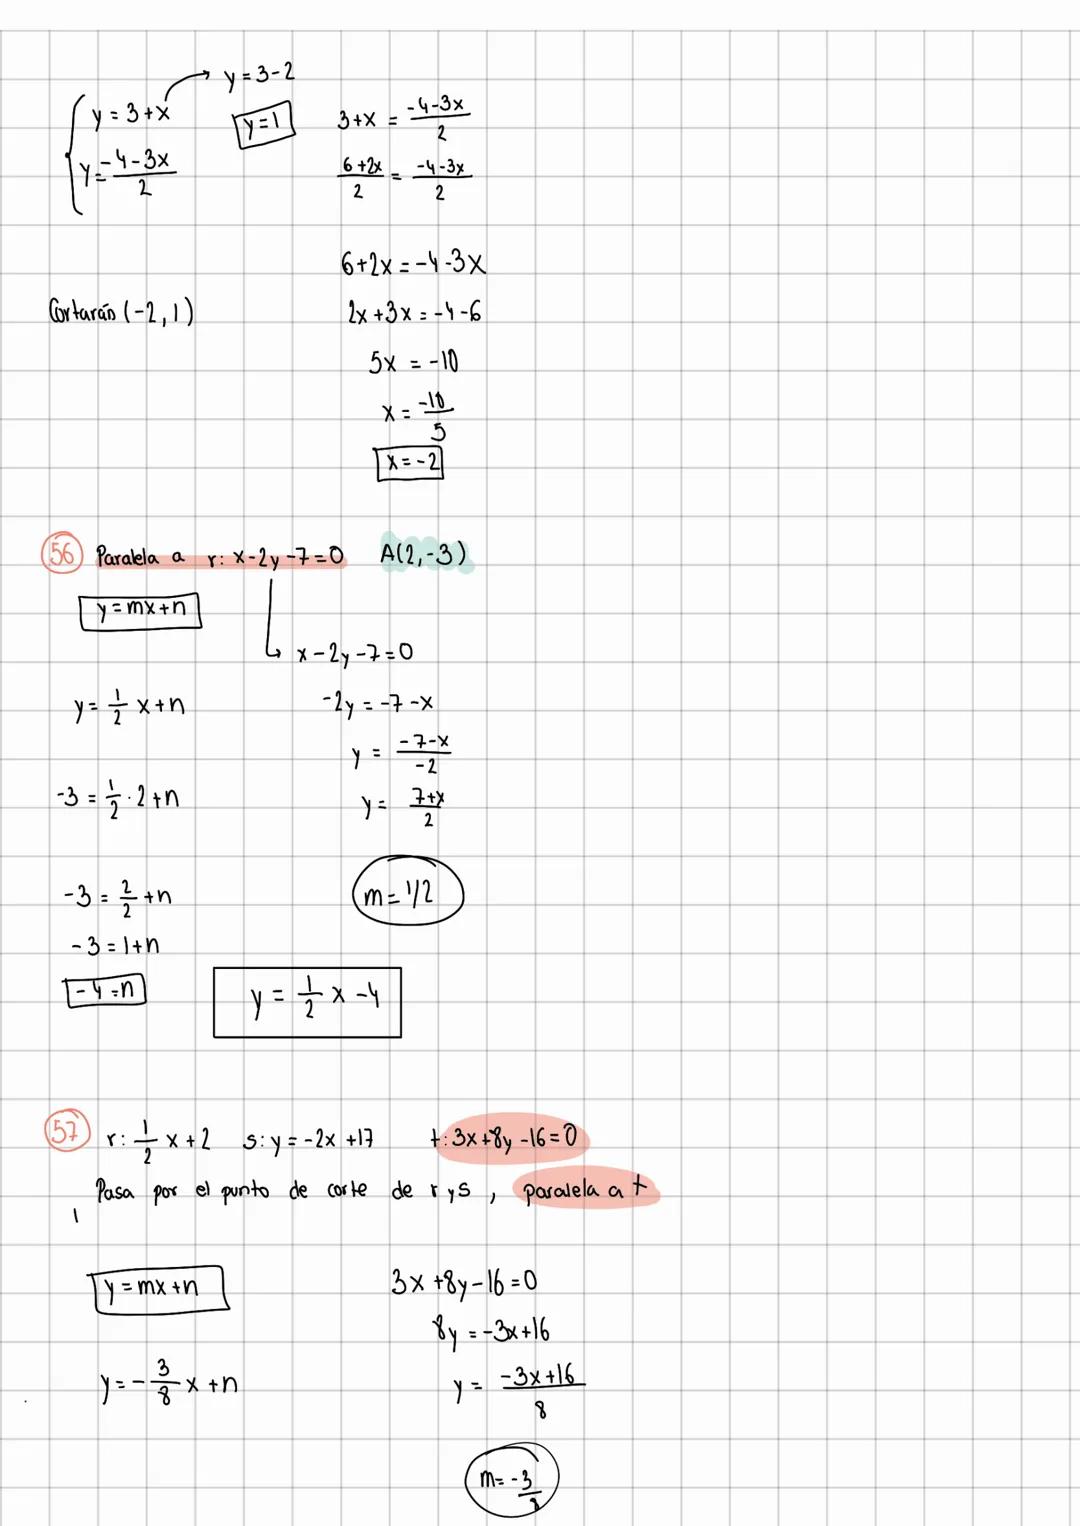 y = 3-2
y = 3+x
y=1
y = -4-3x/2
3+x = -4-3x/2
6+2x/2 = -4-3x/2
6+2x = -4-3x
Cortarán (-2,1)
2x+3x = -4-6
5x = -10
x = -10/5
x = -2
56 Paralela a r: x-2y-7=0 A(2,-3)
y = mx+n
x-2y-7=0
y = 1/2 x+n
-2y = -7-x
y = -7-x/-2
-3 = 1/2 · 2+n
y = 7+x/2
-3 = 2/2 +n
m = 1/2
-3 = 1+n
-4 = n
y = 1/2 x -4
57 r: 1/2 x+2 s: y = -2x +17 t: 3x+8y-16=0
Pasa por el punto de corte de r y s, paralela a t
y = mx+n
3x+8y-16=0
8y = -3x+16
y = -3/8 x +n
y = -3x+16/8
m = -3/8